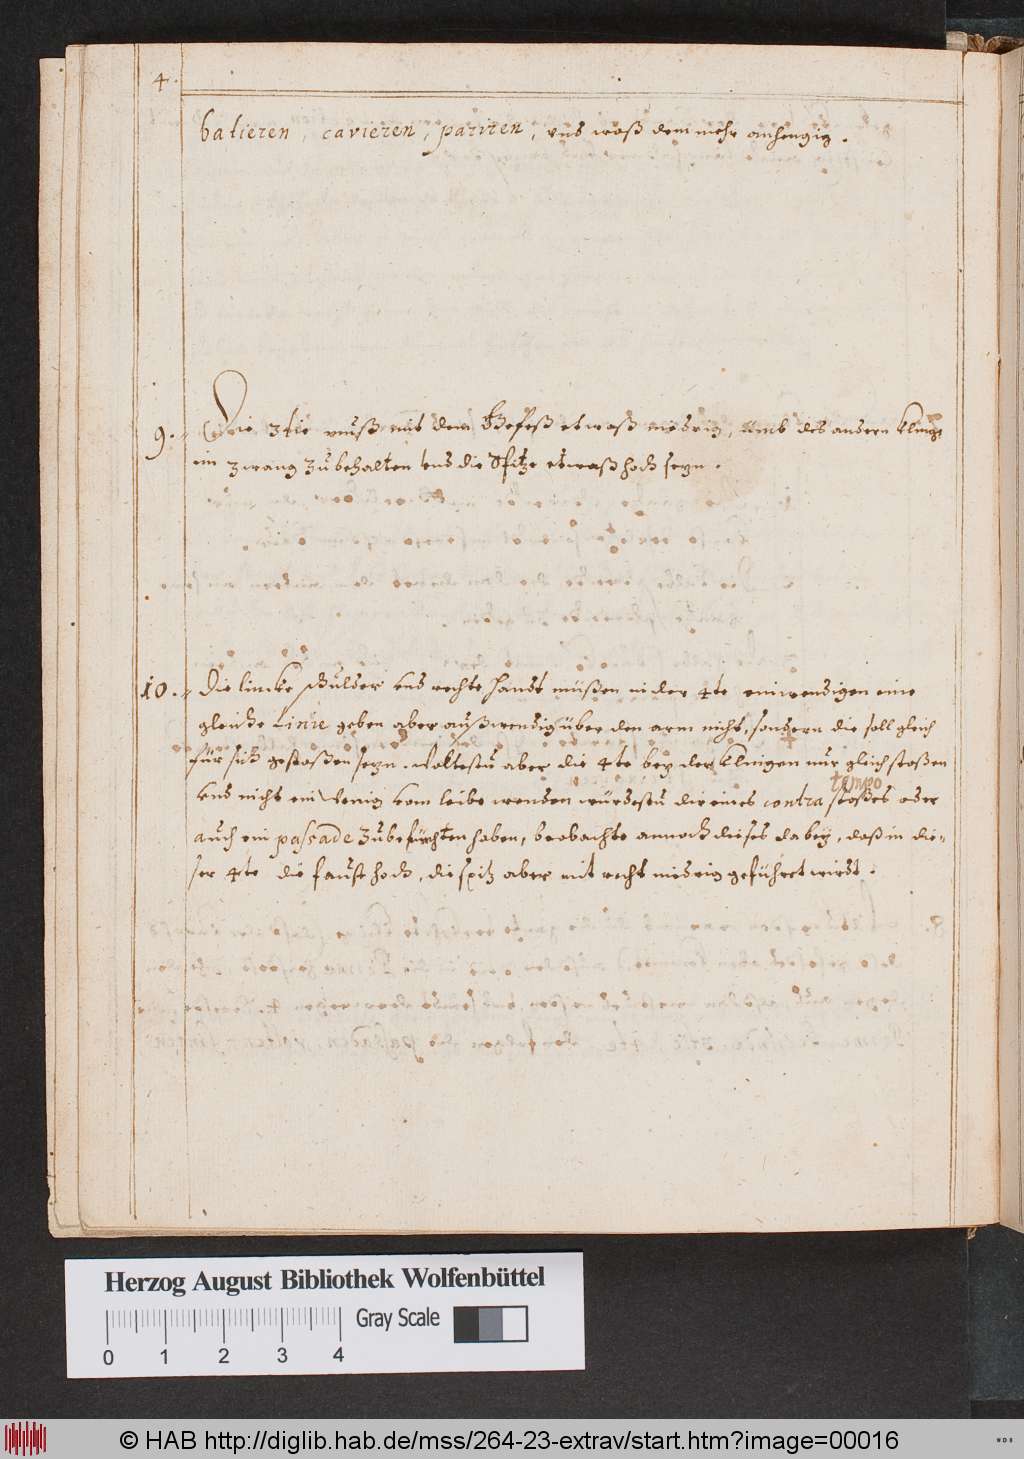 4.
batieren, cavieren, pariren, vnd waß dem mehr anhengig.
9. Die 3tie muß mit dem Gefeß etwaß niedrig, umb des andern klinge
im zwang zubehalten vnd die Spitze etwaß hoch seyn.
10. Die lincke Schulder vnd rechte handt müßen in der 4te einwendigen eine
gleiche Linie geben aber außwendig über den arm nicht, sondern die soll gleich
für sich gestoßen seyn. Woltestu aber die 4te bey der klingen nur gleich stoßen
vnd nicht ein Wenig vom leibe wenden würdestu dir eines contra tempo stoßes oder
auch ein passade zubefürchten haben, beobachte annoch dieses dabey, daß in die-
ser 4te die faust hoch, die spitz aber mit recht niedrig geführet wirdt.
Herzog August Bibliothek Wolfenbüttel
Gray Scale
0 1 2 3 4
© HAB http://diglib.hab.de/mss/264-23-extrav/start.htm?image=00016